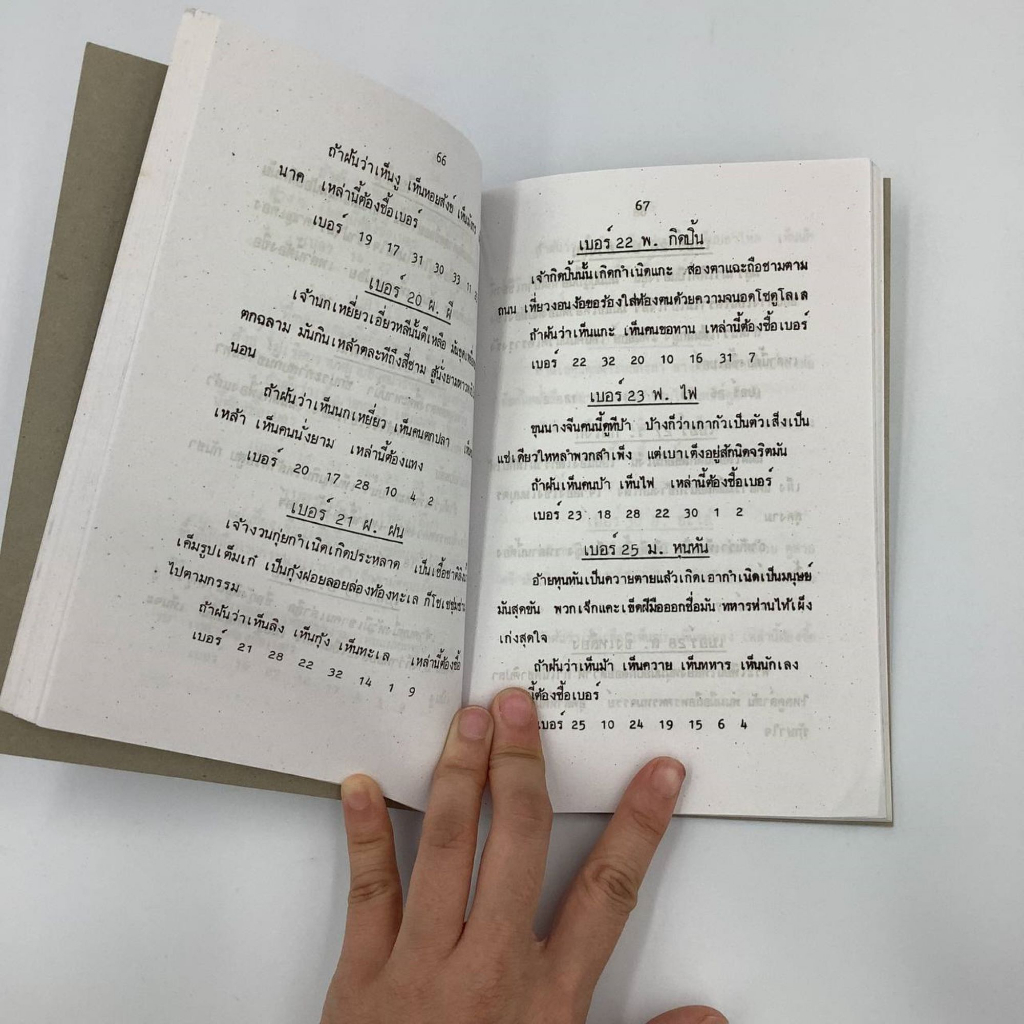 66
ถ้าฝันว่าเห็นงู เห็นหอยสังข์
นาค เหล่านี้ต้องซื้อเบอร์
เบอร์ 19 17 31 30 33 11
เบอร์ 20 ผ. ผี
เจ้านกเหยี่ยวเอี่ยวหลีนั้นดีเหลือ
ตกฉลาม มันกินเหล้าตละทีถึงสี่ชาม
นอน
ถ้าฝันว่าเห็นนกเหยี่ยว เห็นคนตกปลา
เหล้า เห็นคนนั่งยาม เหล่านี้ต้องแทง
เบอร์ 20 17 28 10 4 2
เบอร์ 21 ฝ. ฝน
เจ้างวนกุ่ยกำเนิดเกิดประหลาด
เค็มรูปเต็มเก๋ เป็นกุ้งฝอยลอยล่องท้องทะเล
ไปตามกรรม
ถ้าฝันว่าเห็นลิง เห็นกุ้ง เห็นทะเล เหล่านี้ต้องซื้อ
เบอร์ 21 28 22 32 14 1 9
67
เบอร์ 22 พ. กิดปิ้น
เจ้ากิดปิ้นนั้นเกิดกำเนิดแกะ สองตาแฉะถือชามตาม
ถนน เที่ยวงอนง้อขอร้องใส่ท้องตนด้วยความจนอดโซดูโลเล
ถ้าฝันว่าเห็นแกะ เห็นคนขอทาน เหล่านี้ต้องซื้อเบอร์
เบอร์ 22 32 20 10 16 31 7
เบอร์ 23 ฟ. ไฟ
ขุนนางจีนคนนี้ดูทีบ้า บ้างก็ว่าเกากัวเป็นตัวเส็งเป็น
แซ่เดียวไหหลำพวกสำเพ็ง แต่เบาเต็งอยู่สักนิดจริตมัน
ถ้าฝันเห็นคนบ้า เห็นไฟ เหล่านี้ต้องซื้อเบอร์
เบอร์ 23 18 28 22 30 1 2
เบอร์ 25 ม. หุนหัน
อ้ายหุนหันเป็นควายตายแล้วเกิดเอากำเนิดเป็นมนุษย์
มันสุดขัน พวกเจ็กแคะเซ็ดฝีมือออกชื่อมัน ทหารห่านไท้เผ็ง
เก่งสุดใจ
ถ้าฝันว่าเห็นม้า เห็นควาย เห็นทหาร เห็นนักเลง
นี้ต้องซื้อเบอร์
เบอร์ 25 10 24 19 15 6 4